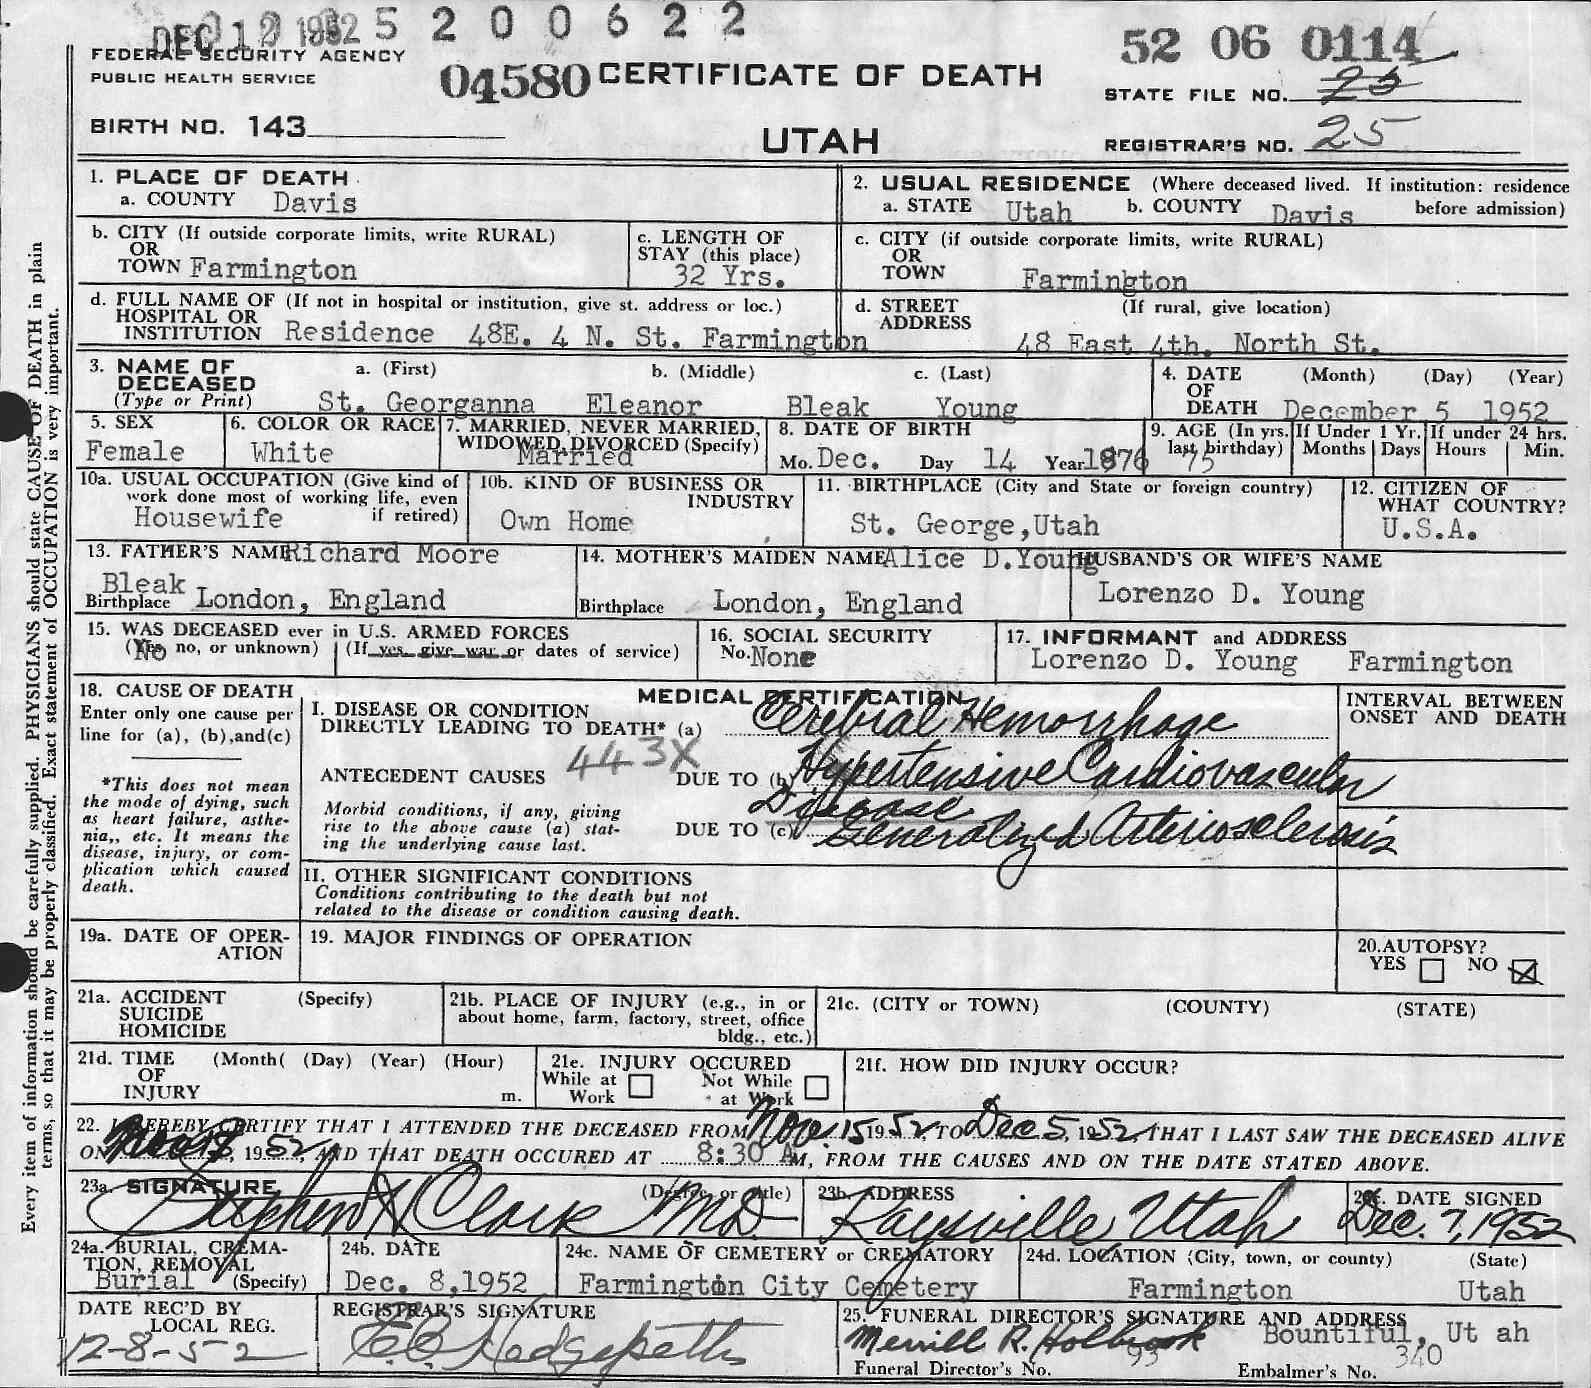 DEC 12 1952 5 2 0 0 6 2 2
52 06 0114
FEDERAL SECURITY AGENCY
PUBLIC HEALTH SERVICE
04580 CERTIFICATE OF DEATH
STATE FILE NO. 25
BIRTH NO. 143
UTAH
REGISTRAR'S NO. 25
Every item of information should be carefully supplied. PHYSICIANS should state CAUSE OF DEATH in plain
terms, so that it may be properly classified. Exact statement of OCCUPATION is very important.
1. PLACE OF DEATH
a. COUNTY Davis
2. USUAL RESIDENCE (Where deceased lived. If institution: residence
a. STATE Utah b. COUNTY Davis before admission)
b. CITY (If outside corporate limits, write RURAL)
OR
TOWN Farmington
c. LENGTH OF
STAY (this place)
32 Yrs.
c. CITY (if outside corporate limits, write RURAL)
OR
TOWN Farmington
d. FULL NAME OF (If not in hospital or institution, give st. address or loc.)
HOSPITAL OR
INSTITUTION Residence 48E. 4 N. St. Farmington
d. STREET (If rural, give location)
ADDRESS
48 East 4th. North St.
3. NAME OF a. (First) b. (Middle) c. (Last)
DECEASED
(Type or Print) St. Georganna Eleanor Bleak Young
4. DATE (Month) (Day) (Year)
OF
DEATH December 5 1952
5. SEX
Female
6. COLOR OR RACE
White
7. MARRIED, NEVER MARRIED,
WIDOWED, DIVORCED (Specify)
Married
8. DATE OF BIRTH
Mo. Dec. Day 14 Year 1876
9. AGE (In yrs.
last birthday)
75
If Under 1 Yr.
Months Days
If under 24 hrs.
Hours Min.
10a. USUAL OCCUPATION (Give kind of
work done most of working life, even
Housewife if retired)
10b. KIND OF BUSINESS OR
INDUSTRY
Own Home
11. BIRTHPLACE (City and State or foreign country)
St. George,Utah
12. CITIZEN OF
WHAT COUNTRY?
U.S.A.
13. FATHER'S NAME Richard Moore
Bleak
Birthplace London, England
14. MOTHER'S MAIDEN NAME Alice D.Young
Birthplace London, England
HUSBAND'S OR WIFE'S NAME
Lorenzo D. Young
15. WAS DECEASED ever in U.S. ARMED FORCES
(Yes no, or unknown) (If yes give war or dates of service)
No
16. SOCIAL SECURITY
No. None
17. INFORMANT and ADDRESS
Lorenzo D. Young Farmington
18. CAUSE OF DEATH
Enter only one cause per
line for (a), (b),and(c)
*This does not mean
the mode of dying, such
as heart failure, asthe-
nia,, etc. It means the
disease, injury, or com-
plication which caused
death.
MEDICAL CERTIFICATION
I. DISEASE OR CONDITION
DIRECTLY LEADING TO DEATH* (a) Cerebral Hemorrhage
443X
ANTECEDENT CAUSES DUE TO (b) Hypertensive Cardiovascular
Disease
Morbid conditions, if any, giving
rise to the above cause (a) stat-
ing the underlying cause last.
DUE TO (c) Generalized Arteriosclerosis
INTERVAL BETWEEN
ONSET AND DEATH
II. OTHER SIGNIFICANT CONDITIONS
Conditions contributing to the death but not
related to the disease or condition causing death.
19a. DATE OF OPER-
ATION
19. MAJOR FINDINGS OF OPERATION
20.AUTOPSY?
YES NO
21a. ACCIDENT (Specify)
SUICIDE
HOMICIDE
21b. PLACE OF INJURY (e.g., in or
about home, farm, factory, street, office
bldg., etc.)
21c. (CITY or TOWN) (COUNTY) (STATE)
21d. TIME (Month( (Day) (Year) (Hour)
OF
INJURY m.
21e. INJURY OCCURED
While at Not While
Work at Work
21f. HOW DID INJURY OCCUR?
22. I HEREBY CERTIFY THAT I ATTENDED THE DECEASED FROM Nov. 15 1952, TO Dec 5, 1952, THAT I LAST SAW THE DECEASED ALIVE
ON 1952, AND THAT DEATH OCCURED AT 8:30 AM, FROM THE CAUSES AND ON THE DATE STATED ABOVE.
23a. SIGNATURE (Degree or title)
Stephen H Clark MD
23b. ADDRESS
Kaysville Utah
23c. DATE SIGNED
Dec. 7, 1952
24a. BURIAL, CREMA-
TION, REMOVAL
Burial (Specify)
24b. DATE
Dec. 8,1952
24c. NAME OF CEMETERY or CREMATORY
Farmington City Cemetery
24d. LOCATION (City, town, or county) (State)
Farmington Utah
DATE REC'D BY
LOCAL REG.
12-8-52
REGISTRAR'S SIGNATURE
E.C. Hedgepeth
25. FUNERAL DIRECTOR'S SIGNATURE AND ADDRESS
Merrill R. Holbrook Bountiful, Ut ah
Funeral Director's No. 93 Embalmer's No. 340